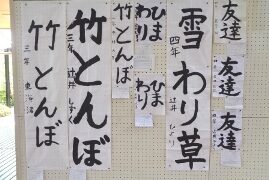 友達
友達
友達
雪わり草
四年 辻井 ひより
ひまわり
ひまわり
竹とんぼ
竹とんぼ
三年 辻井
竹とんぼ
三年